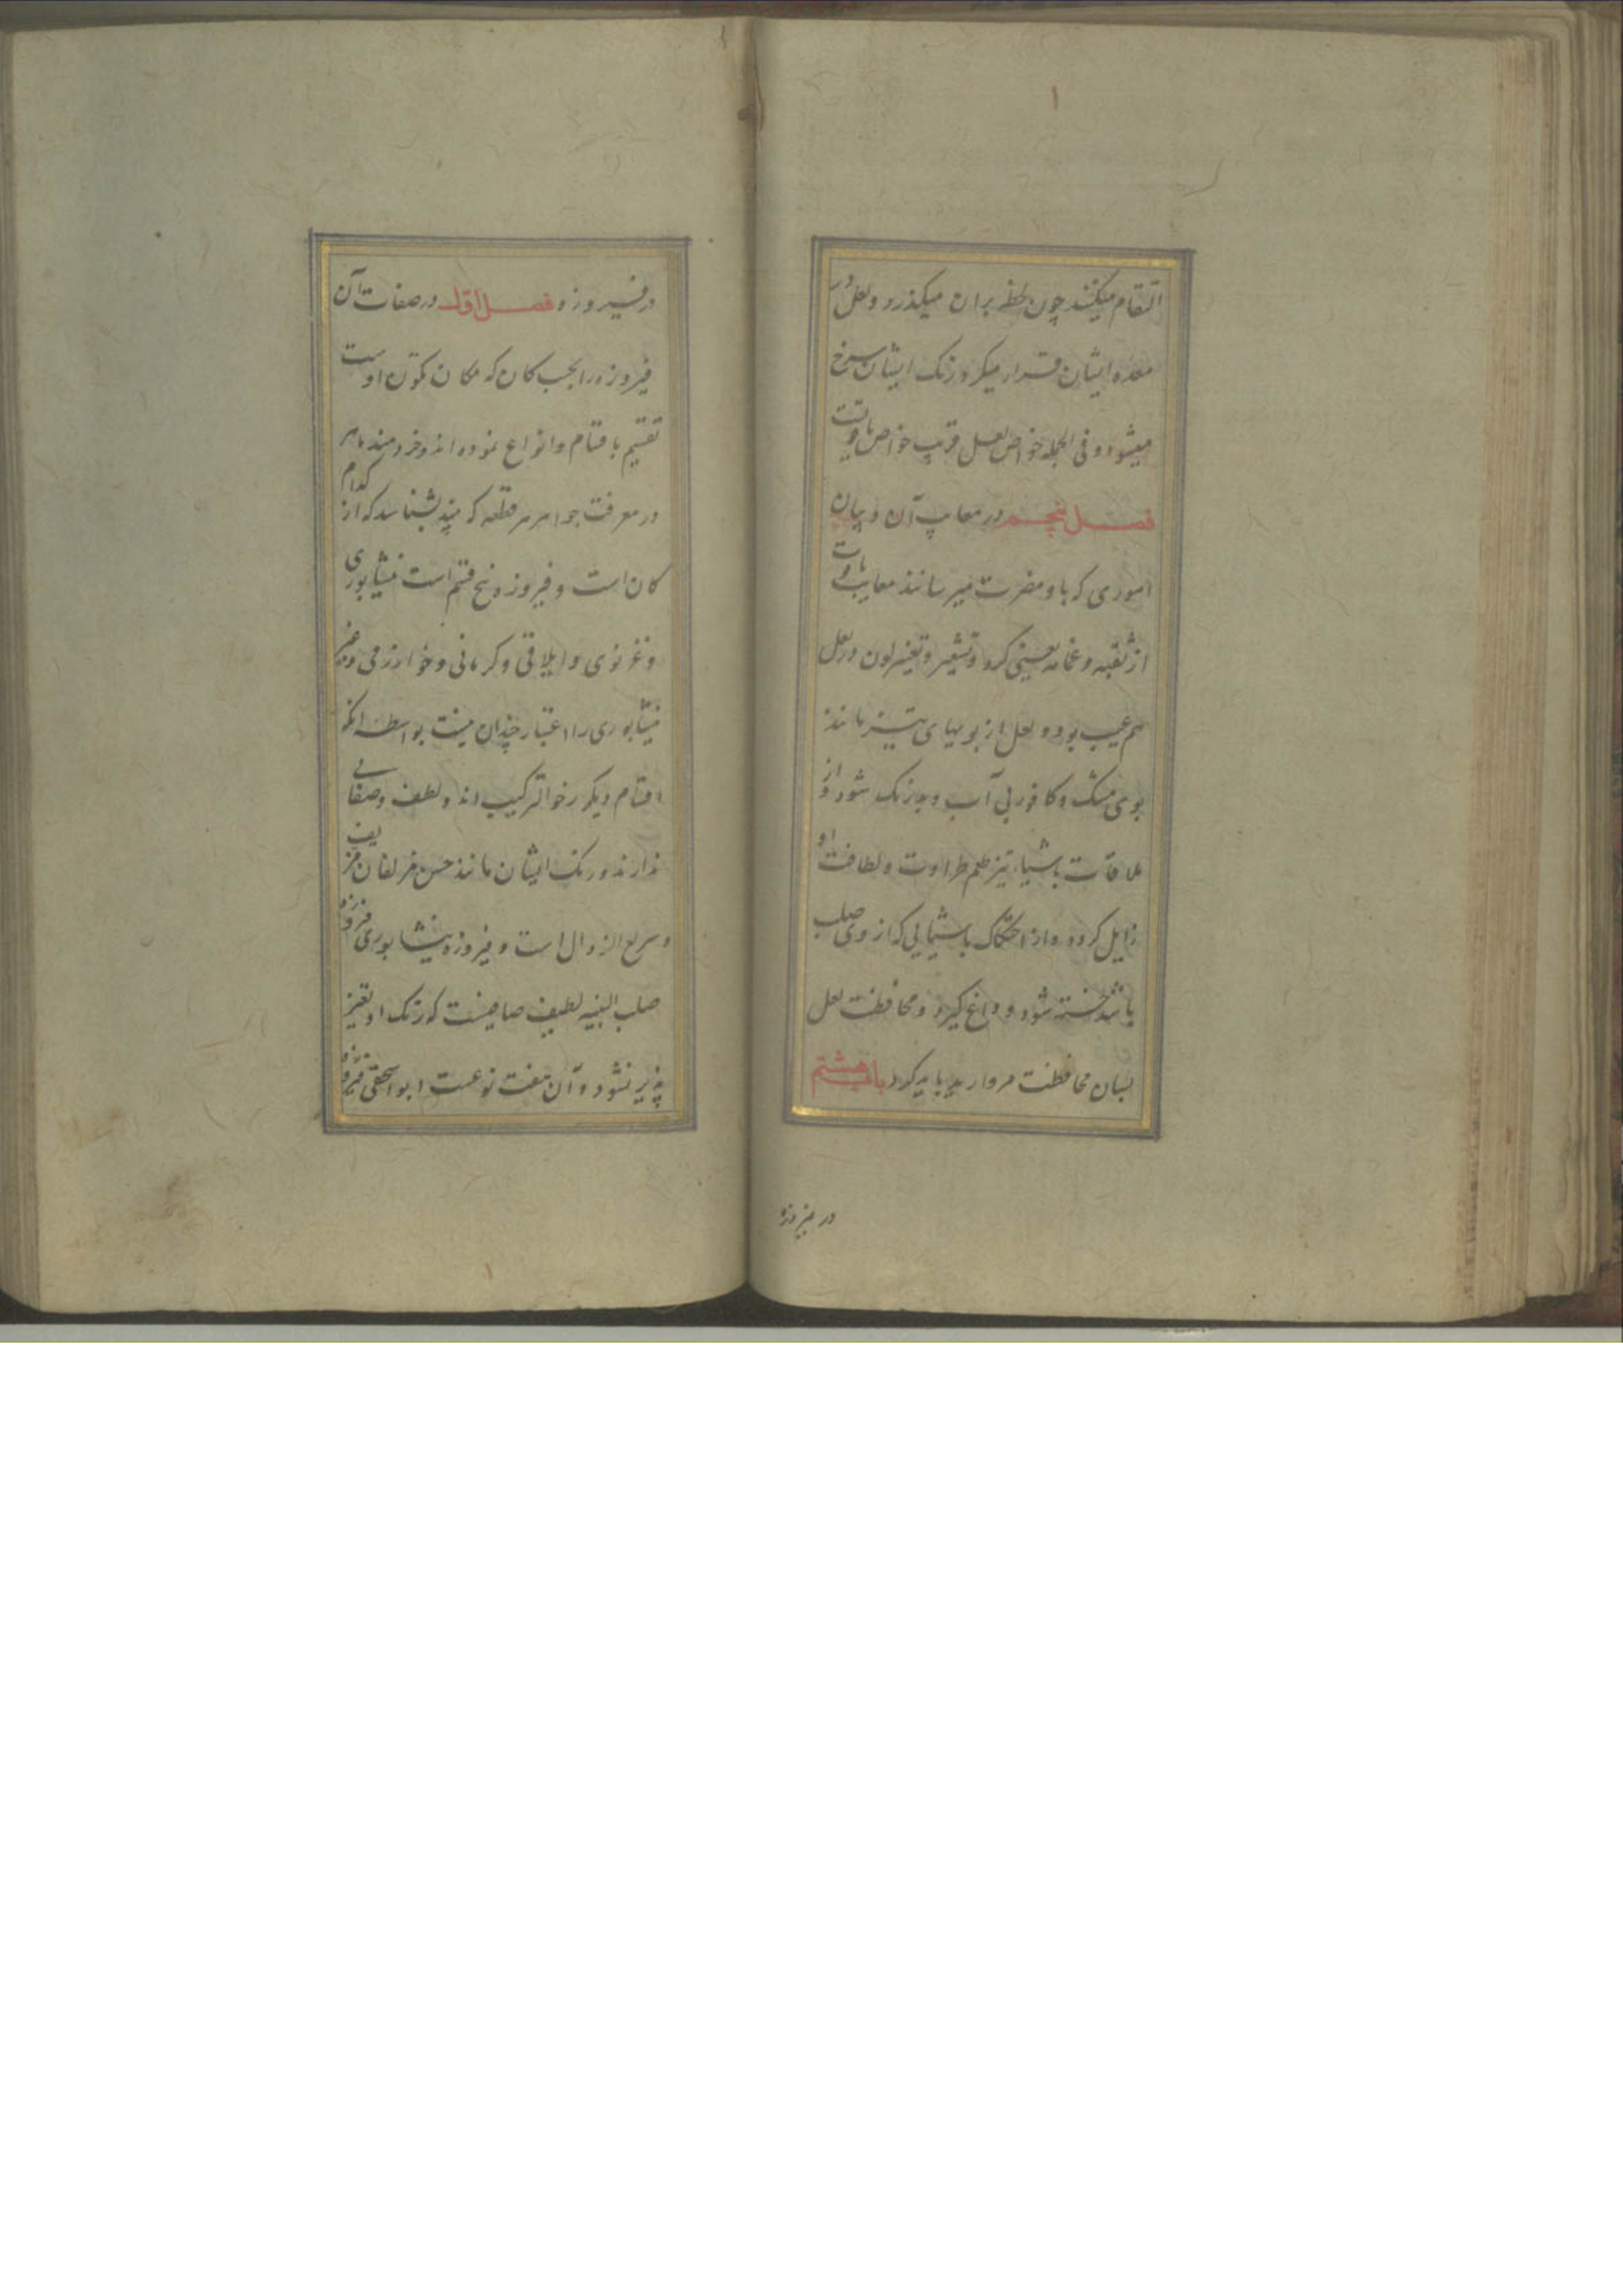 التقام میکنند چون لحظه بران میکذرد و لعل در
معده ایشان قرار میکرد رنک ایشان سرخ
میشود و فی الجمله خواص لعل قریب خواص یاقوتست
فصل پنجم در معایب آن و بیان
اموری که باو مضرت میرسانند معایب یاقوت
از ثقبه و غمامه تعیین کرد و تشعیر و تغییر لون در لعل
هم عیب بود و لعل از بویهای تیز مانند
بوی مشک و کافور بی آب و بدرنک شود و از
ملاقات باشیاء تیز طعم طراوت و لطافت او
زایل کردد و از احتکاک باشیایی که از وی صلب
باشد خسته شود و داغ کیرد و محافظت لعل
بسان محافظت مروارید باید کرد باب هشتم
در فیروزه
در فیروزه فصل اول در صفات آن
فیروزه را بحسب کان که مکان تکون اوست
تقسیم باقسام و انواع نموده اند و خردمند ماهر
در معرفت جواهر هر قطعه که بیند بشناسد که از کدام
کان است و فیروزه پنج قسم است نیشابوری
و غزنوی و ایلاقی و کرمانی و خوارزمی و غیر
نیشابوری را اعتبار چندان نیست بواسطه انکه
اقسام دیکر رخو الترکیب اند و لطف و صفائی
ندارند و رنک ایشان مانند حسن مزلفان مزیف
و سریع الزوال است و فیروزه نیشابوری فیروزه
صلب البنیه لطیف صافیست که رنک او تغیر
پذیر نشود و آن هفت نوعست ابواسحقی فیروزه